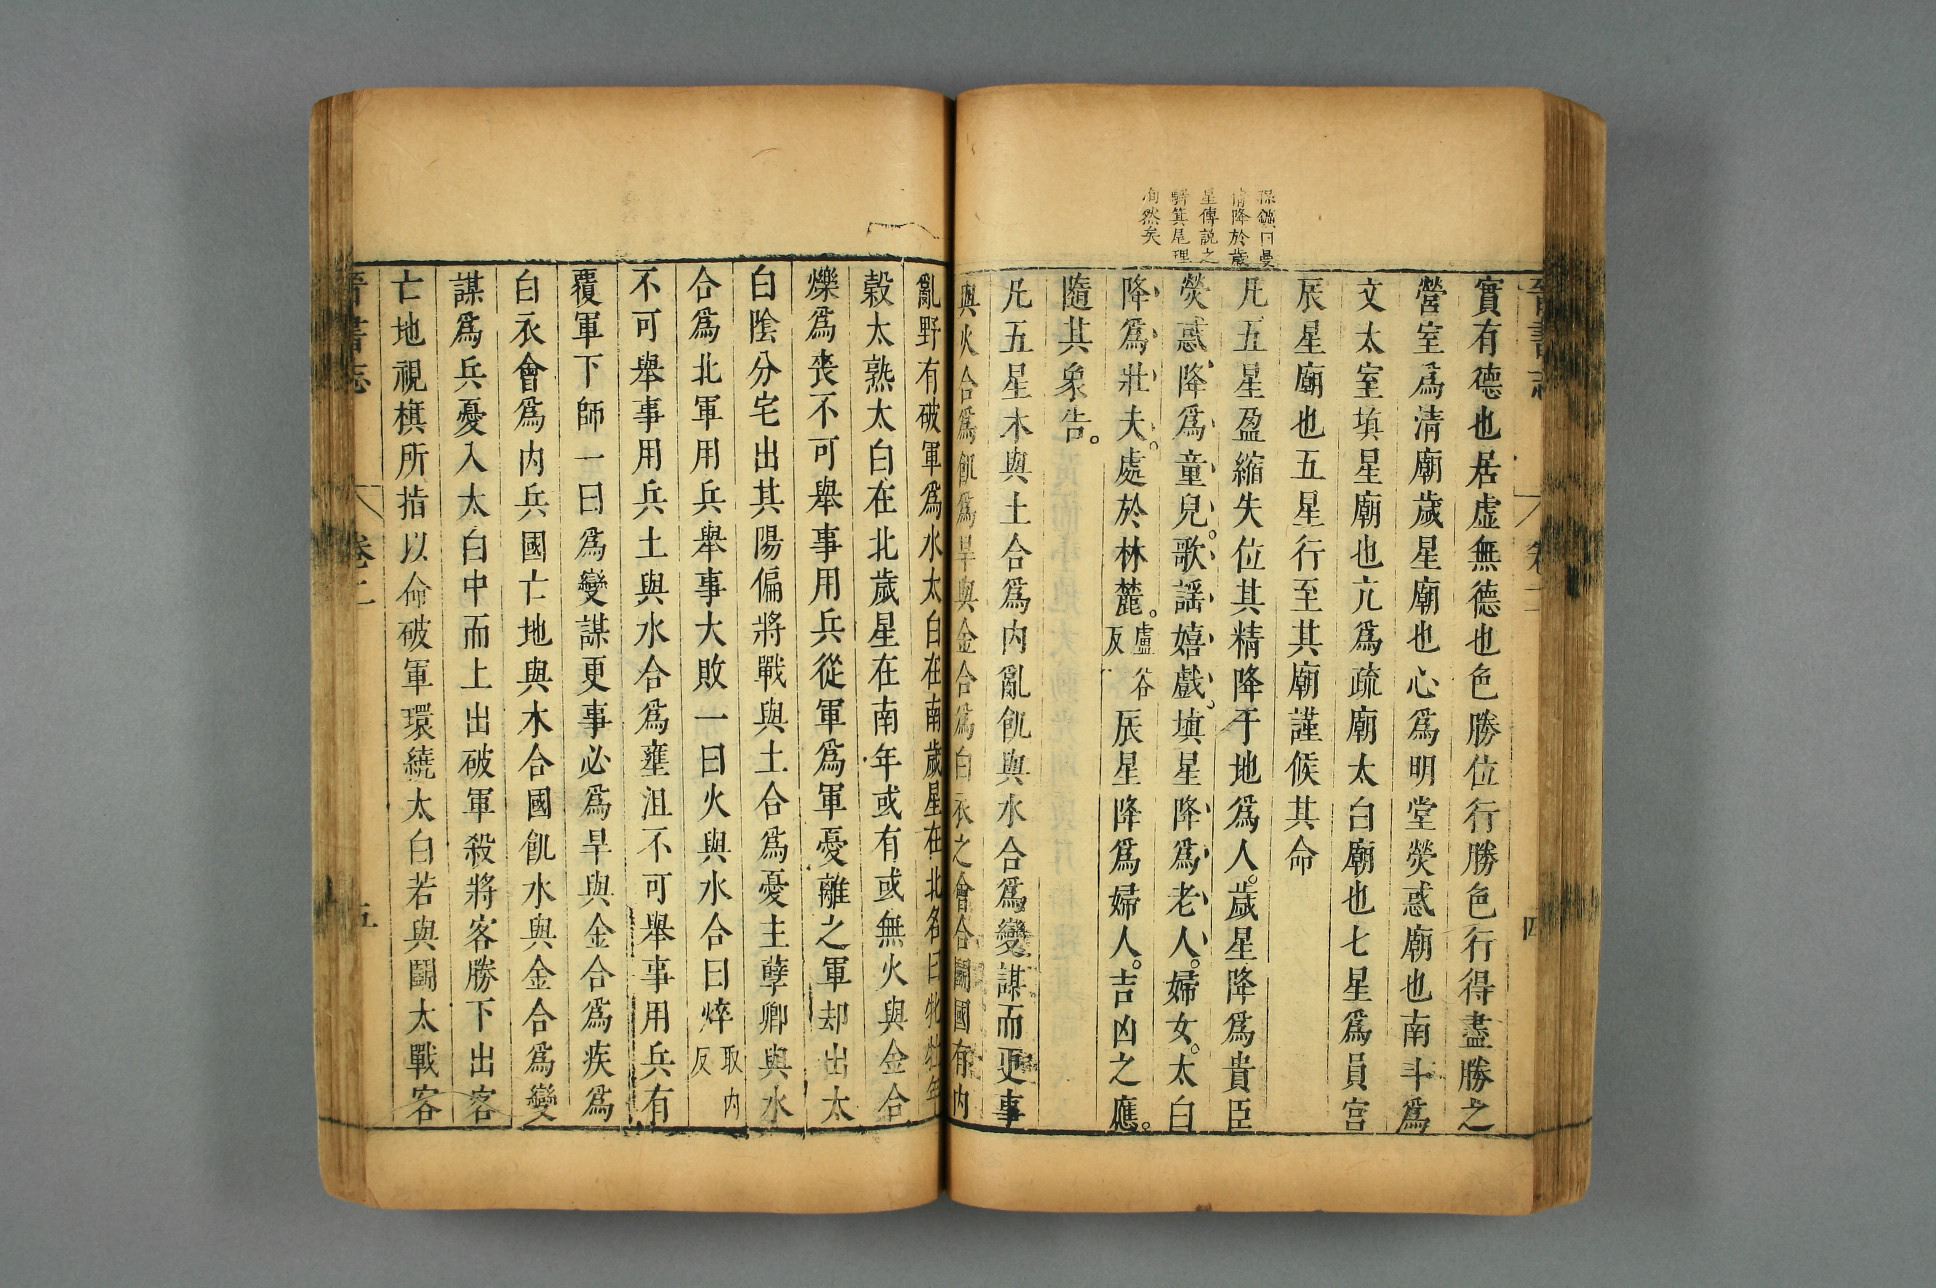 晉書志 卷二 四
曰曼
降於歲
星傳說之
騎箕尾理
洵然矣
實有德也居虛無德也色勝位行勝色行得盡勝之
營室爲清廟歲星廟也心爲明堂熒惑廟也南斗爲
文太室塡星廟也亢爲疏廟太白廟也七星爲員宮
辰星廟也五星行至其廟謹候其命
凡五星盈縮失位其精降于地爲人。歲星降爲貴臣
熒惑降爲童兒。歌謡嬉戲。塡星降爲老人。婦女。太白
降爲壯夫。處於林麓。盧谷反辰星降爲婦人。吉凶之應。
隨其象告。
凡五星木與土合爲内亂飢與水合爲變謀而更事
與火合爲飢爲旱與金合爲白衣之會合鬭國有内
亂野有破軍爲水太白在南歲星在北名曰牝牡年
穀太熟太白在北歲星在南年或有或無火與金合
爍爲喪不可舉事用兵從軍爲軍憂離之軍却出太
白陰分宅出其陽偏將戰與土合爲憂主孽卿與水
合爲北軍用兵舉事大敗一曰火與水合曰焠取内反
不可舉事用兵土與水合爲壅沮不可舉事用兵有
覆軍下師一曰爲變謀更事必爲旱與金合爲疾爲
白衣會爲内兵國亡地與木合國飢水與金合爲變
謀爲兵憂入太白中而上出破軍殺將客勝下出客
亡地視旗所指以命破軍環繞太白若與鬭太戰客
晉書志 卷二 五